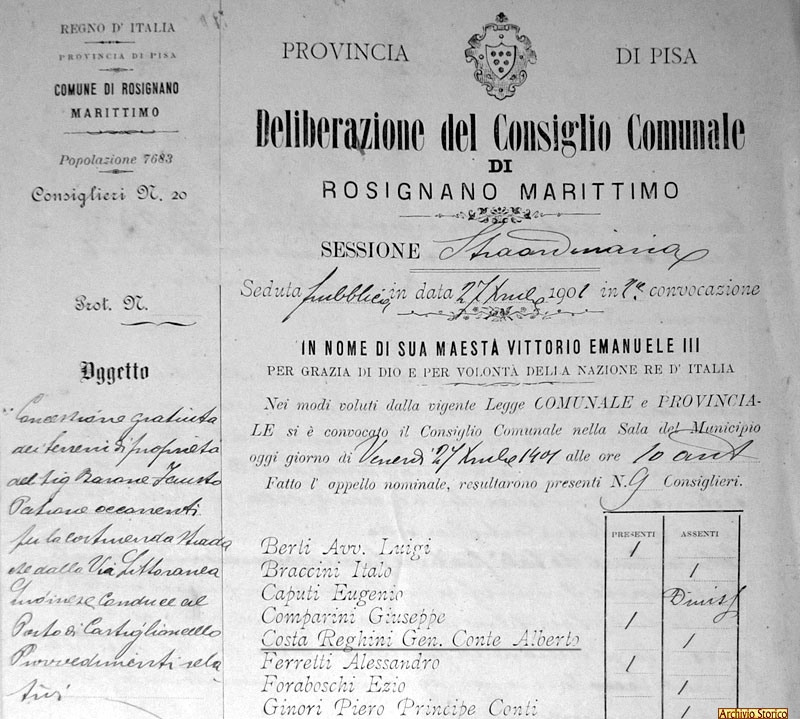 REGNO D' ITALIA
PROVINCIA DI PISA
COMUNE DI ROSIGNANO
MARITTIMO
Popolazione 7683
Consiglieri N. 20
Prot. N.
Oggetto
Concessione gratuita
dei terreni di proprietà
del Sig Barone Fausto
Patrone occorrenti
per la costruenda strada
che dalla Via Littoranea
conduce al
Porto di Castiglioncello
Provvedimenti rela
tivi
PROVINCIA DI PISA
Deliberazione del Consiglio Comunale
DI
ROSIGNANO MARITTIMO
SESSIONE Straordinaria
Seduta pubblica in data 27 Xmbre 1901 in convocazione
IN NOME DI SUA MAESTÀ VITTORIO EMANUELE III
PER GRAZIA DI DIO E PER VOLONTÀ DELLA NAZIONE RE D' ITALIA
Nei modi voluti dalla vigente Legge COMUNALE e PROVINCIA-
LE si è convocato il Consiglio Comunale nella Sala del Municipio
oggi giorno di Venerdì 27 Xmbre 1901 alle ore 10 ant
Fatto l' appello nominale, resultarono presenti N. 9 Consiglieri.
PRESENTI ASSENTI
Berti Avv. Luigi 1
Braccini Italo 1
Caputi Eugenio Dimiss
Comparini Giuseppe 1
Costa Reghini Gen. Conte Alberto 1
Ferretti Alessandro 1
Foraboschi Ezio 1
Ginori Piero Principe Conti 1
Archivio Storico